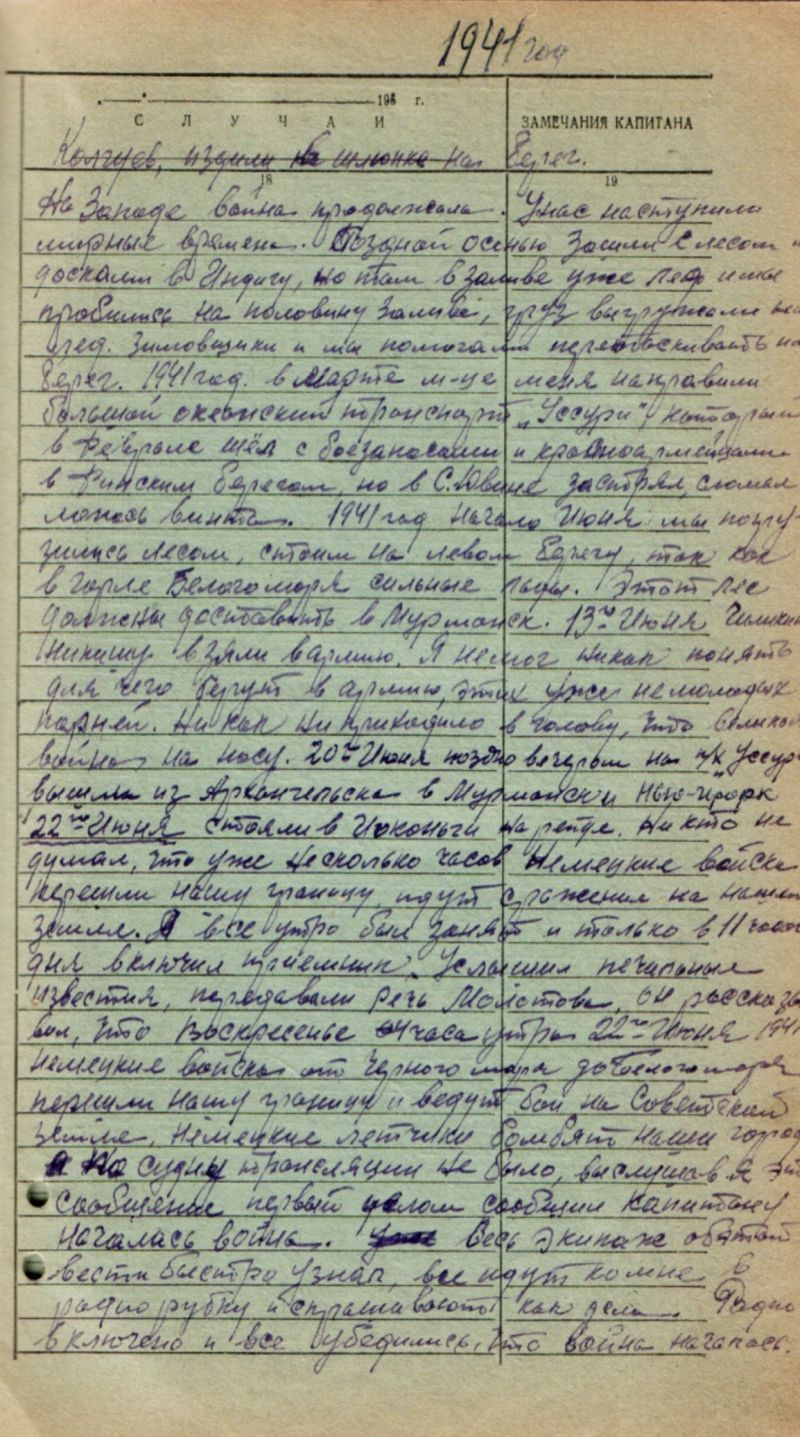 1941 год
195 г.
СЛУЧАИ
ЗАМЕЧАНИЯ КАПИТАНА
Колгуев, ездили на шлюпке на берег.
18
19
На Западе война продолжала. У нас наступили
мирные времена. Поздной осенью зашли с лесом и
досками в Индигу, но там в заливе уже лед и мы
пробились на половину залива, груз выгружали на
лед. Зимовщики и мы помогали перетаскивать на
берег. 1941 год. в Марте м-це меня направили
большой океанский транспорт „Уссури", который
в Феврале шёл с боезапасами и красноармейцами
в Финским берегам, но в С.Двине застрял, сломал
лопасть винта. 1941 год Начало Июня мы погру-
зились лесом, стоим на левом берегу, так как
в горле Белого моря сильные льды. Этот лес
должны доставить в Мурманск. 13го Июня
взяли в армию. Я не мог никак понять
для чего берут в армию, этих уже немолодых
парней. Ни как ни приходило в голову, что великая
война на носу. 20го Июня поздно вечером на п/х Уссури
вышли из Архангельска в Мурманск и Нью-Йорк
22го Июня стояли в Иоканьги на рейде. Ни кто не
думал, что уже несколько часов Немецкие войска
перешли нашу границу, идут сражения на нашей
земле. Я все утро был занят и только в 11 часов
дня включил приемник. Услышил печальные
известия, передавали речь Молотова, он рассказы
вал, что Воскресенье 04 часа утра 22го Июня 1941
немецкие войска от Черного моря до Белого моря
перешли нашу границу и ведут бои на Советской
земле, Немецкие летчики бомбят наши города
На судны трансляции не было, выслушав я это
сообщение первый делом сообщил капитану
Началась война. Весь экипаж
вести быстро узнал, все идут ко мне в
радиорубку и спрашивают как дела. Радио
включено и все убедились, что война началась.